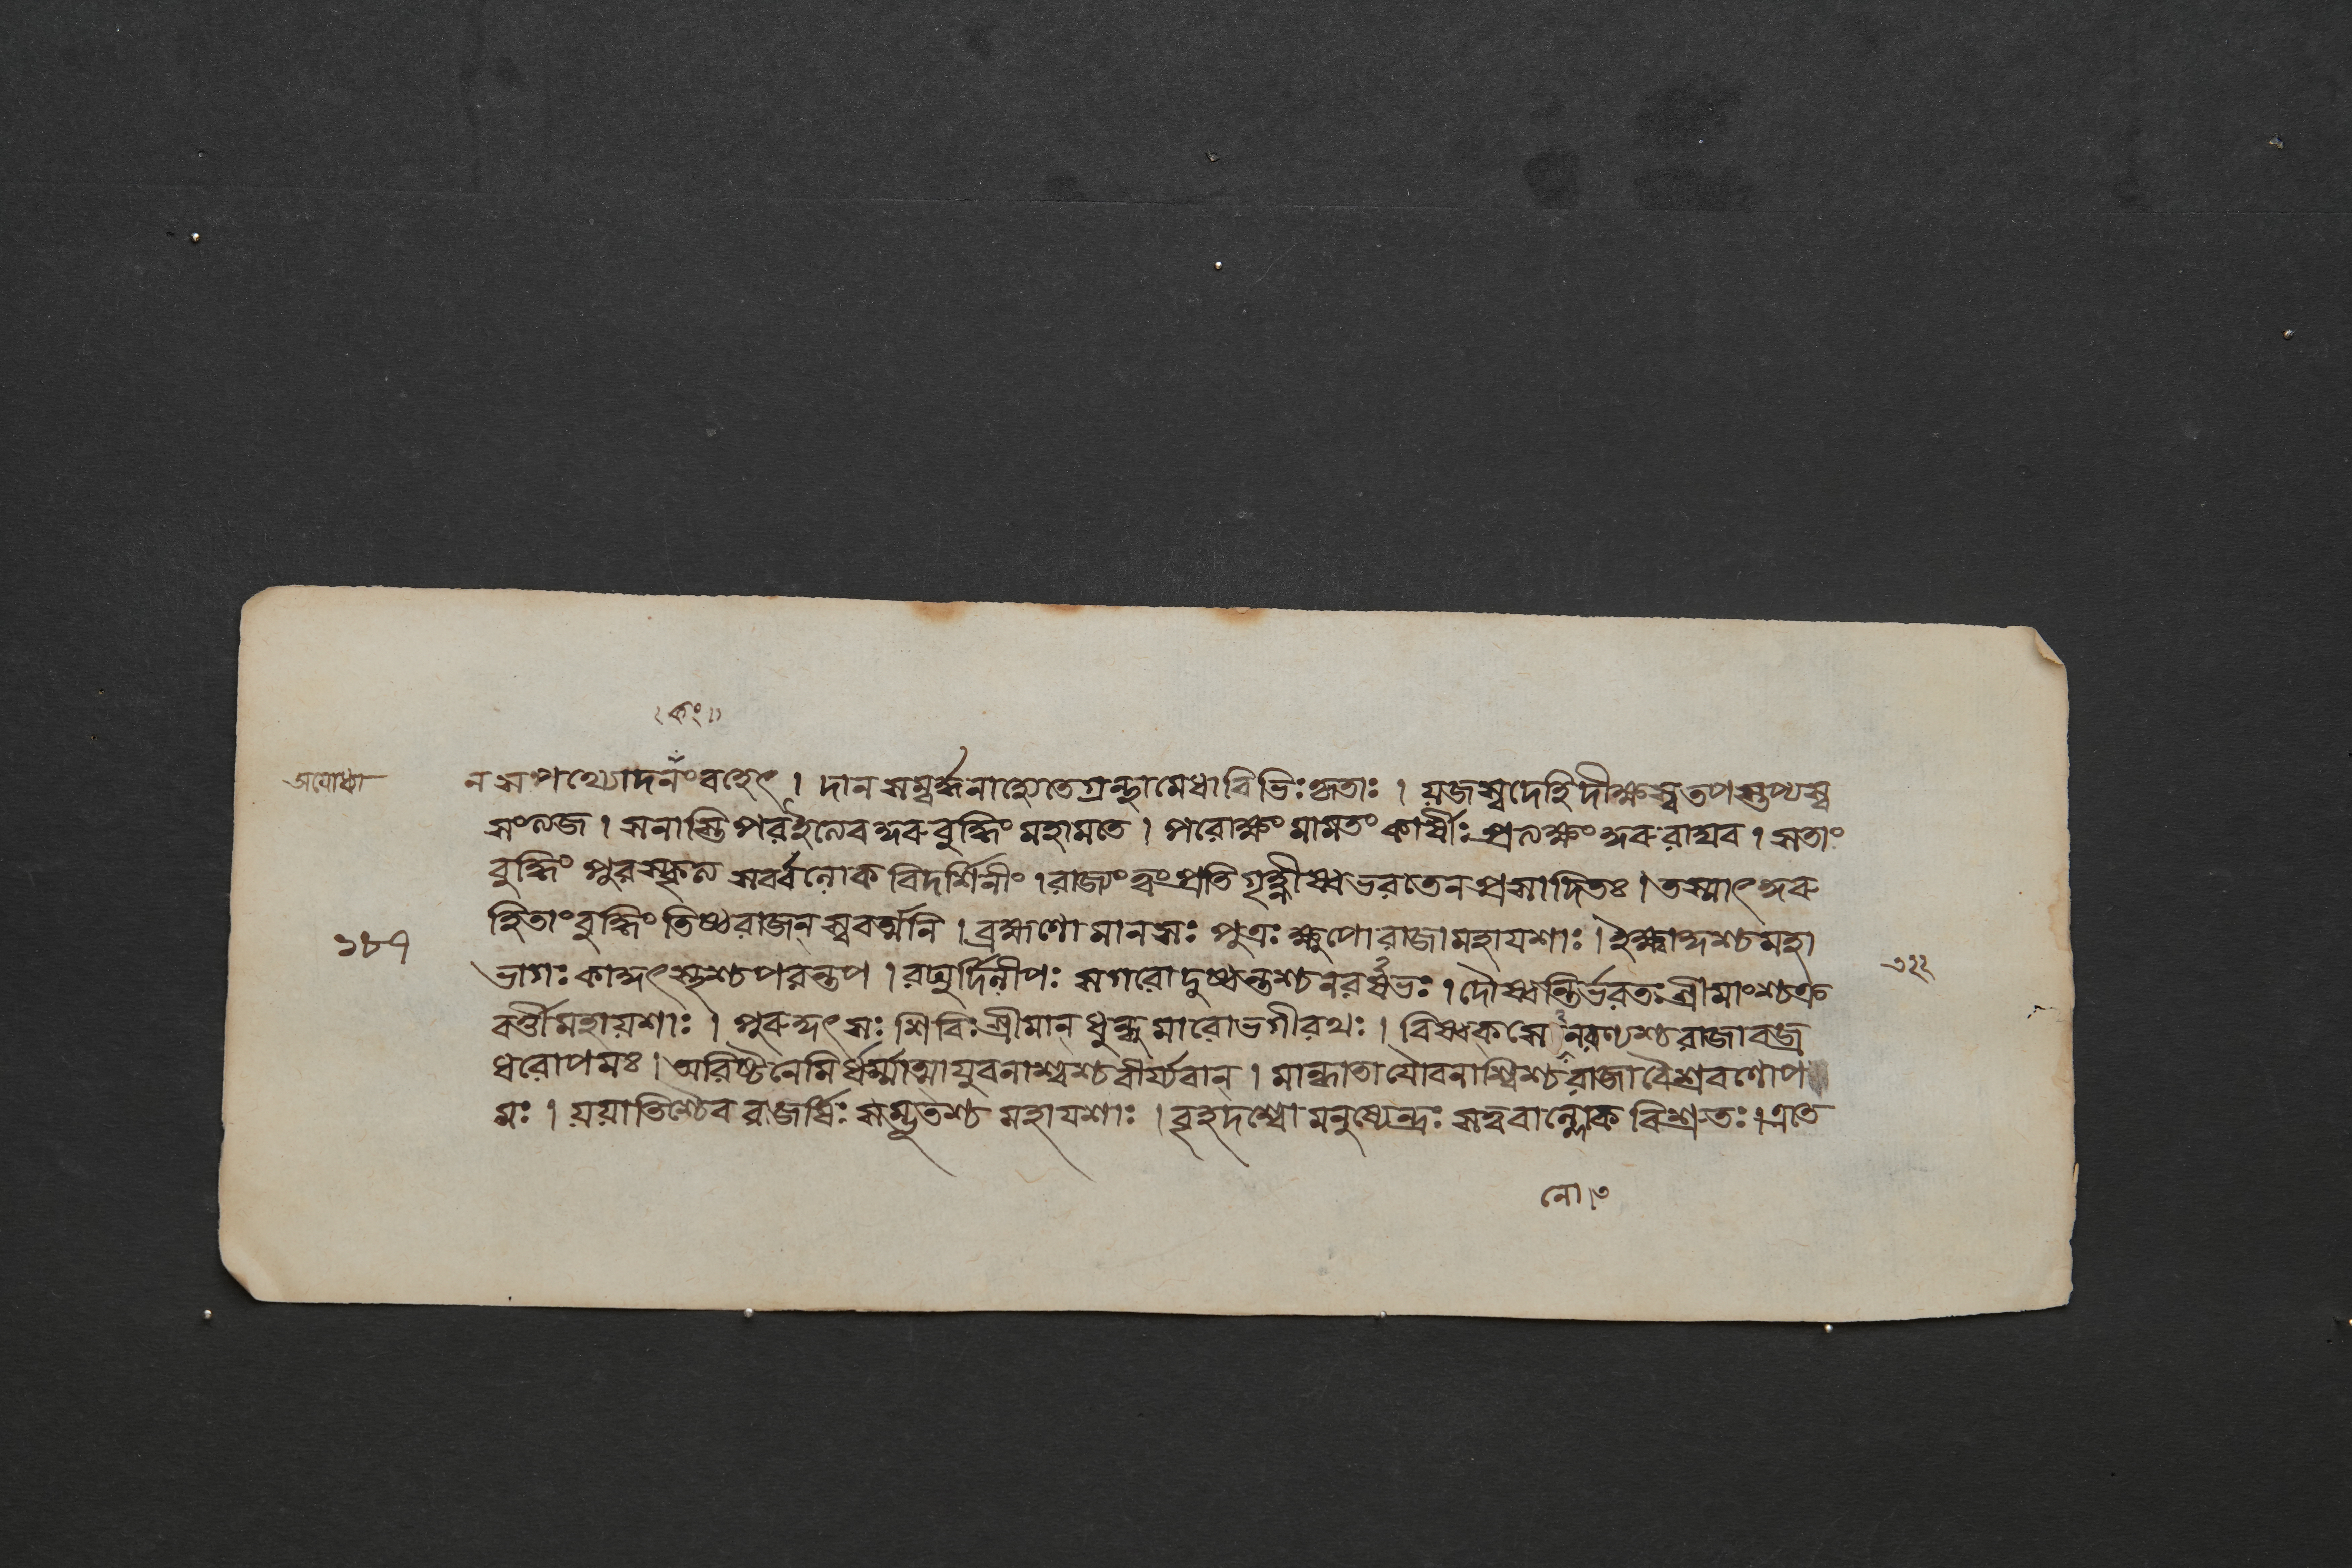 কং॥
অযোধ্যা
ন স পথ্যোদনং বহেৎ । দানসম্বর্দ্ধনাহ্যেতেগ্রন্থামেধাবিভিঃকৃতাঃ । যজস্বদেহিদীক্ষস্বতপস্তপ্যস্ব
সংত্যজ । সনাস্তি পরইত্যেবঙ্কুরুবুদ্ধিং মহামতে । পরোক্ষং মামতং কার্ষীঃ প্রত্যক্ষং ঙ্কুরুরাঘব । সতাং
বুদ্ধিং পুরস্কৃত্য সর্ব্বলোকবিদর্শিনীং । রাজ্যং ত্বং প্রতিগৃহ্নীষ্বভরতেনপ্রসাদিতঃ । তস্মাৎঙ্কুরু
হিতাং বুদ্ধিং তিষ্ঠরাজন্ স্ববর্ত্মনি । ব্রহ্মণোমানসঃ পুত্রঃ ক্ষুপোরাজামহাযশাঃ । ইক্ষ্বাকুশ্চমহা
১৮৭
ভাগঃ কাকুৎস্থশ্চপরন্তপ । রঘুর্দিলীপঃ সগরোদুষ্মন্তশ্চনরর্ষভঃ । দৌষ্মন্তির্ভরতঃ শ্রীমাংশ্চক্র
৩২২
বর্ত্তীমহাযশাঃ । পুরুকুৎসঃ শিবিঃ শ্রীমান্ ধুন্ধুমারোভগীরথঃ । বিষ্বকসেনরণ্যশ্চরাজাবজ্র
ধরোপমঃ । অরিষ্টনেমির্ধর্ম্মাত্মাযুবনাশ্বশ্চবীর্য্যবান্ । মান্ধাতাযৌবনাশ্বিশ্চরাজাবৈশ্রবণোপ
মঃ । যযাতিশ্চৈবরাজর্ষিঃ সম্ভূতশ্চ মহাযশাঃ । বৃহদশ্বোমনুষ্যেন্দ্রঃ সত্ববাল্লোকবিশ্রুতঃ । এতে